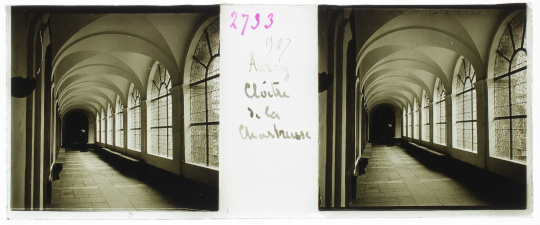 2733
907
Auray
Cloître
de la
Chartreuse